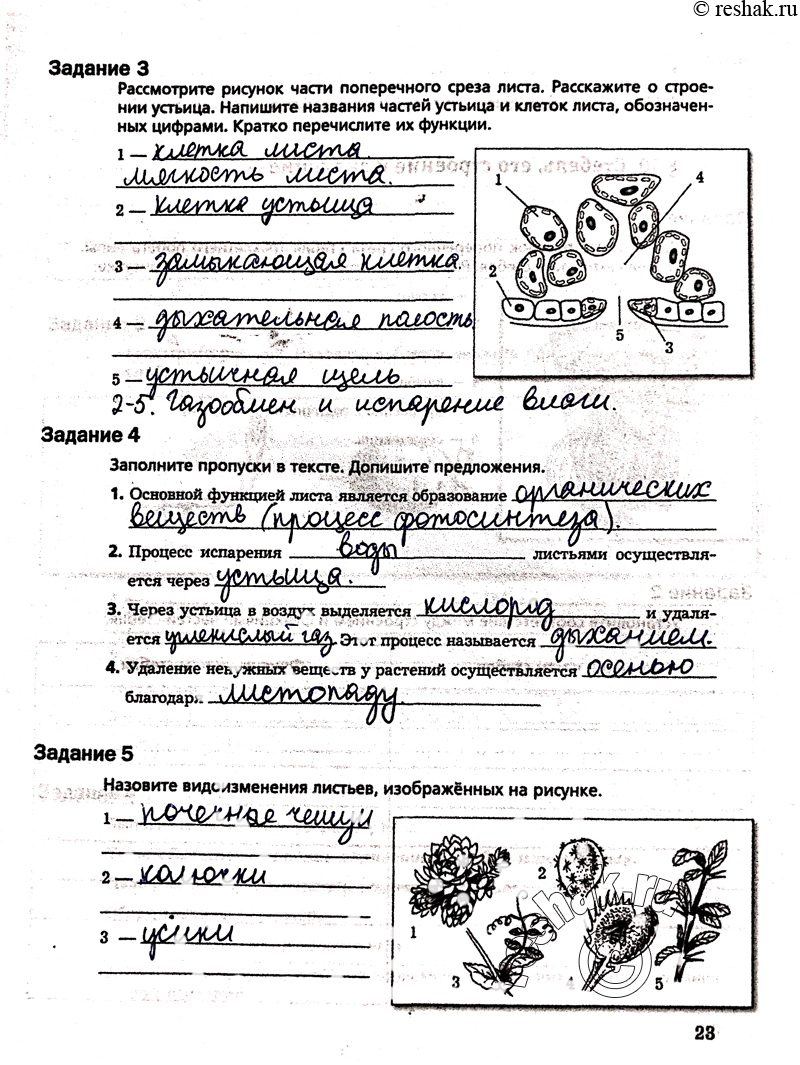 © reshak.ru
Задание 3
Рассмотрите рисунок части поперечного среза листа. Расскажите о строе-
нии устьица. Напишите названия частей устьица и клеток листа, обозначен-
ных цифрами. Кратко перечислите их функции.
1 — клетка листа
мягкость листа.
2 — клетка устьица
3 — замыкающая клетка.
4 — дыхательная полость
5 — устьичная щель
2-5. Газообмен и испарение влаги.
1
4
2
5
3
Задание 4
Заполните пропуски в тексте. Допишите предложения.
1. Основной функцией листа является образование органических
веществ (процесс фотосинтеза).
2. Процесс испарения воды листьями осуществля-
ется через устьица.
3. Через устьица в воздух выделяется кислород и удаля-
ется углекислый газ. Этот процесс называется дыханием.
4. Удаление ненужных веществ у растений осуществляется осенью
благодаря листопаду.
Задание 5
Назовите видоизменения листьев, изображённых на рисунке.
1 — почечные чешуи
2 — колючки
3 — усики
1
2
3
4
5
23